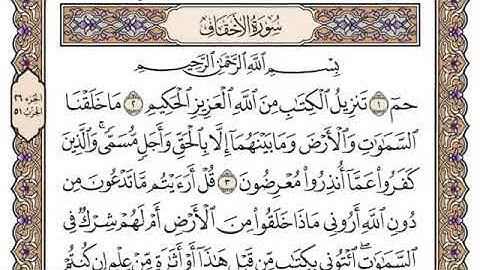 سُورَةُ الأَحْقَافِ
بِسْمِ اللَّهِ الرَّحْمَٰنِ الرَّحِيمِ
حمٓ ١ تَنزِيلُ الْكِتَٰبِ مِنَ اللَّهِ الْعَزِيزِ الْحَكِيمِ ٢ مَا خَلَقْنَا
السَّمَٰوَٰتِ وَالْأَرْضَ وَمَا بَيْنَهُمَآ إِلَّا بِالْحَقِّ وَأَجَلٍ مُّسَمًّى ۚ وَالَّذِينَ
كَفَرُوا عَمَّآ أُنذِرُوا مُعْرِضُونَ ٣ قُلْ أَرَءَيْتُم مَّا تَدْعُونَ مِن
دُونِ اللَّهِ أَرُونِي مَاذَا خَلَقُوا مِنَ الْأَرْضِ أَمْ لَهُمْ شِرْكٌ فِي
السَّمَٰوَٰتِ ۖ ائْتُونِي بِكِتَٰبٍ مِّن قَبْلِ هَٰذَآ أَوْ أَثَٰرَةٍ مِّنْ عِلْمٍ إِن كُنتُمْ
الجزء ٢٦
الحزب ٥١